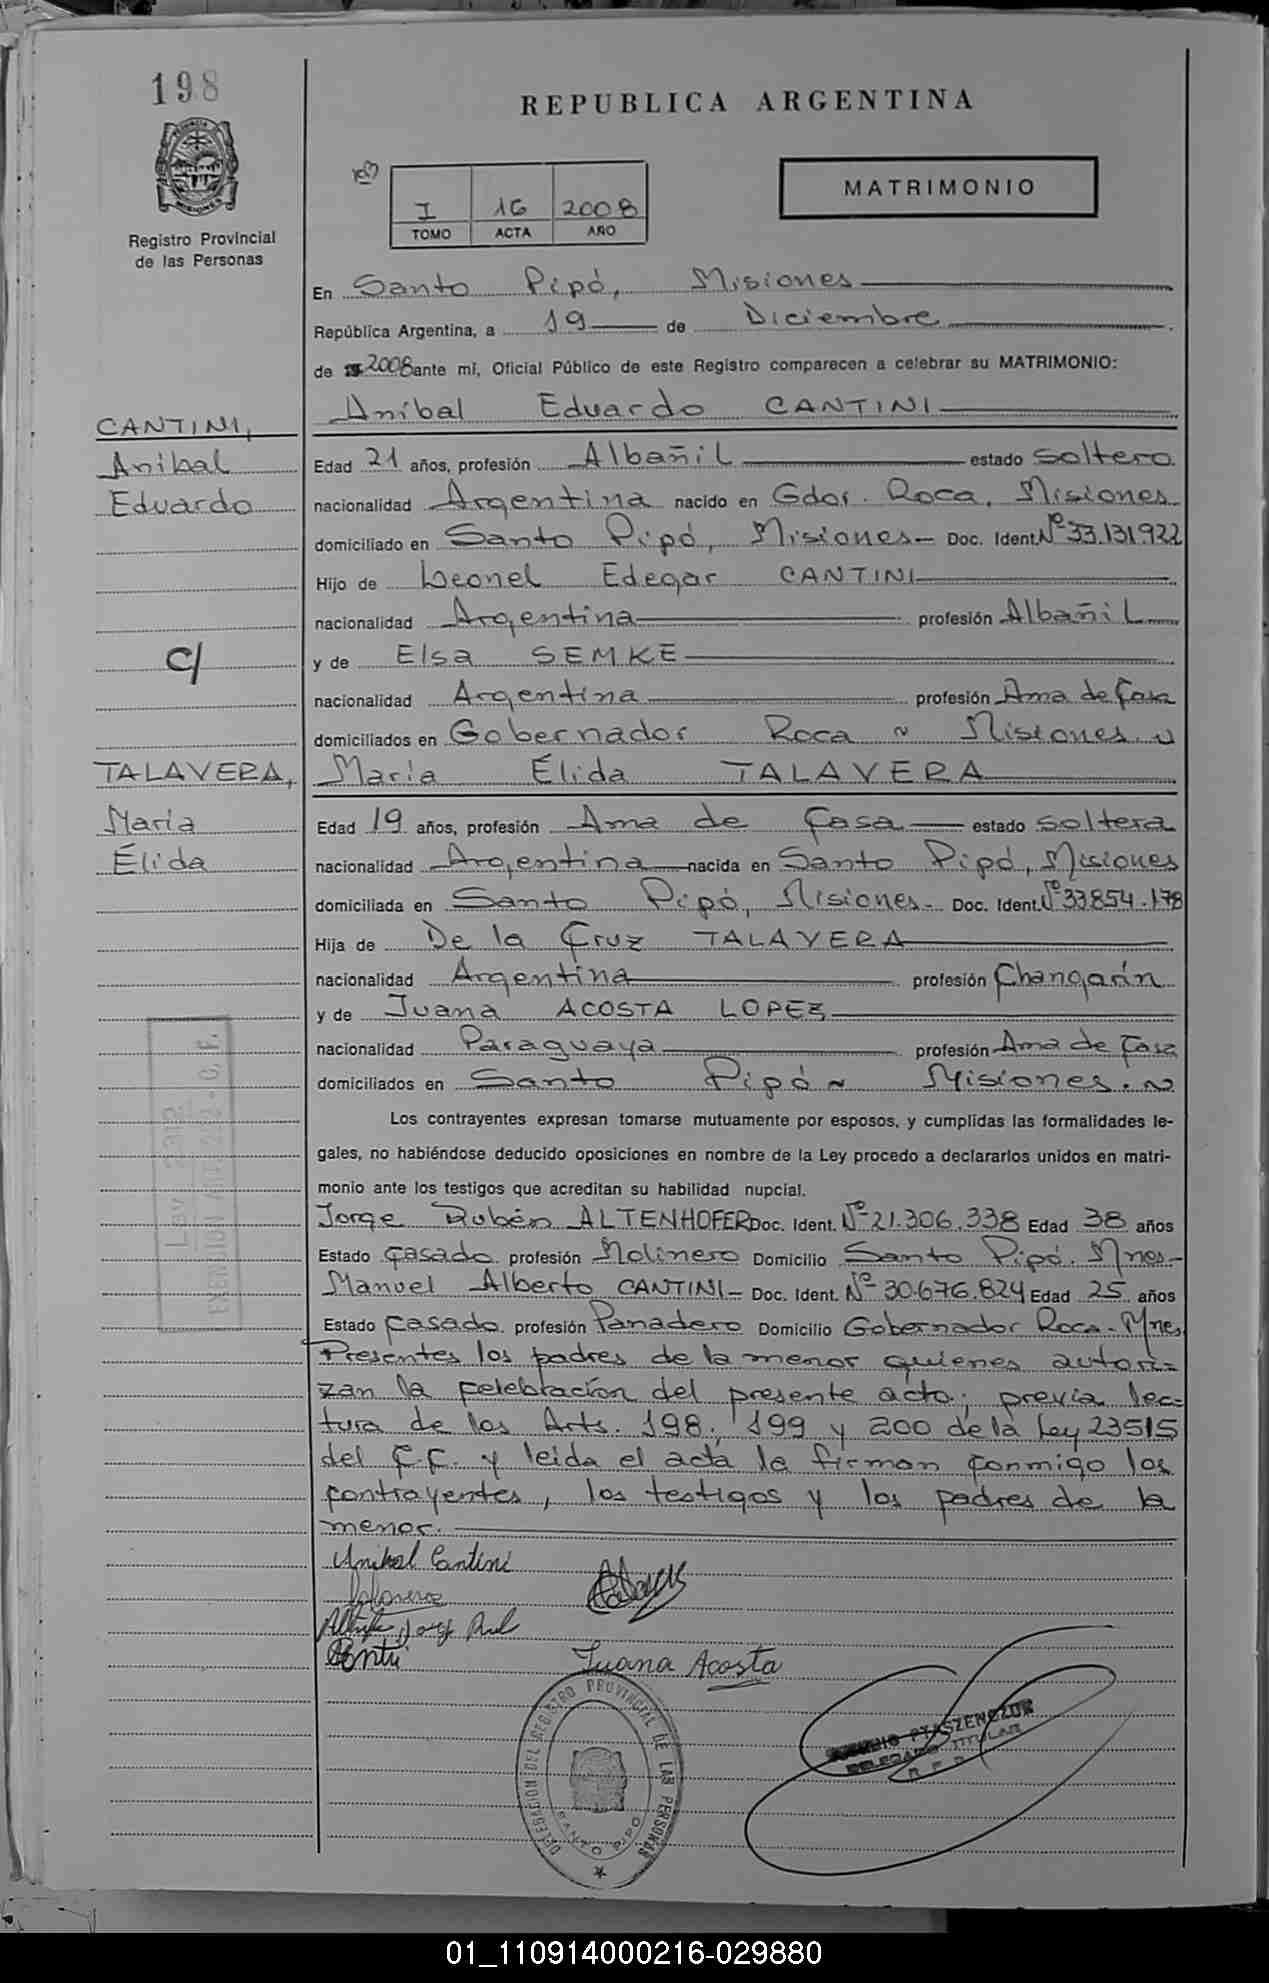 198
REPUBLICA ARGENTINA
MATRIMONIO
I 16 2008
TOMO ACTA AÑO
Registro Provincial
de las Personas
En Santo Pipó, Misiones
República Argentina, a 19 de Diciembre
de 2008 ante mí, Oficial Público de este Registro comparecen a celebrar su MATRIMONIO:
Aníbal Eduardo CANTINI
CANTINI,
Aníbal
Eduardo
Edad 21 años, profesión Albañil estado soltero
nacionalidad Argentina nacido en Gdor. Roca, Misiones
domiciliado en Santo Pipó, Misiones- Doc. Ident. Nº 33.131.922
Hijo de Leonel Edegar CANTINI
nacionalidad Argentina profesión Albañil
c/
y de Elsa SEMKE
nacionalidad Argentina profesión Ama de Casa
domiciliados en Gobernador Roca ~ Misiones. ~
TALAVERA,
María
Élida
María Élida TALAVERA
Edad 19 años, profesión Ama de Casa estado soltera
nacionalidad Argentina nacida en Santo Pipó, Misiones
domiciliada en Santo Pipó, Misiones- Doc. Ident. Nº 33854.178
Hija de De la Cruz TALAVERA
nacionalidad Argentina profesión Changarín
y de Juana ACOSTA LOPEZ
nacionalidad Paraguaya profesión Ama de Casa
domiciliados en Santo Pipó ~ Misiones. ~
Los contrayentes expresan tomarse mutuamente por esposos, y cumplidas las formalidades le-
gales, no habiéndose deducido oposiciones en nombre de la Ley procedo a declararlos unidos en matri-
monio ante los testigos que acreditan su habilidad nupcial.
Jorge Rubén ALTENHOFER Doc. Ident. Nº 21.306.338 Edad 38 años
Estado casado profesión Molinero Domicilio Santo Pipó. Mnes-
Manuel Alberto CANTINI- Doc. Ident. Nº 30.676.824 Edad 25 años
Estado casado profesión Panadero Domicilio Gobernador Roca- Mnes
Presentes los padres de la menor quienes autori-
zan la celebración del presente acto; previa lec-
tura de los Arts. 198, 199 y 200 de la Ley 23515
del C.C. y leida el acta la firman conmigo los
contrayentes, los testigos y los padres de la
menor.
Anibal Cantini
Juana Acosta
DELEGACION DEL REGISTRO PROVINCIAL DE LAS PERSONAS
SANTO PIPO
PTASZENCZUK
DELEGADO TITULAR
01_110914000216-029880